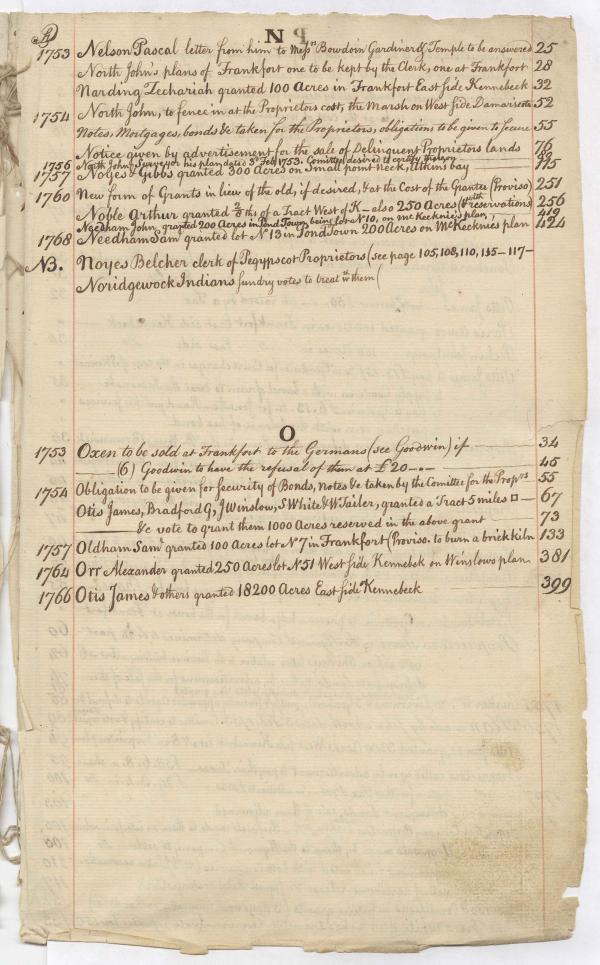 N
1753 Nelson Pascal letter from him to Messrs Bowdoin Gardiner & Temple to be answered 25
North John's plans of Frankfort one to be kept by the Clerk, one at Frankfort 28
Narding Zechariah granted 100 Acres in Frankfort East side Kennebeck 32
1754 North John, to fence in at the Proprietors cost, the Marsh on West side Damariscota 52
Notes, Mortgages, bonds &c taken for the Proprietors, obligations to be given to secure 55
Notice given by advertisement for the sale of Delinquent Proprietors lands 76
1756 North John Surveyor his plan dated 3d Feb 1753. Comittee desired to certify thereon
1757 Noyes & Gibbs granted 300 Acres on Small point Neck, Atkins bay 115
1760 New form of Grants in lieu of the old, if desired, & at the Cost of the Grantee (Proviso) 251
Noble Arthur granted ths of a Tract West of K— also 250 Acres (with reservations) 256
Needham John, granted 200 Acres in Pond Town, being lot N10, on McKechnie's plan 419
1768 Needham Sam granted lot N13 in Pond Town 200 Acres on McKechnie's plan 424
N3. Noyes Belcher clerk of Pegypscot Proprietors (see page 105, 108, 110, 115 — 117—
Noridgewock Indians sundry votes to treat with them (
O
1753 Oxen to be sold at Frankfort to the Germans (see Goodwin) if 34
(6) Goodwin to have the refusal of them at £20 — 45
1754 Obligation to be given for security of Bonds, Notes & taken by the Comittee for the Proprs 55
Otis James, Bradford G, J Winslow, S White & W Tailer, granted a Tract 5 miles □ — 67
&c vote to grant them 1000 Acres reserved in the above grant 73
1757 Oldham Saml granted 100 Acres lot N7 in Frankfort (Proviso. to burn a brick kiln 133
1764 Orr Alexander granted 250 Acres lot N51 West side Kennebek on Winslows plan 381
1766 Otis James & others granted 18200 Acres East side Kennebeck 399